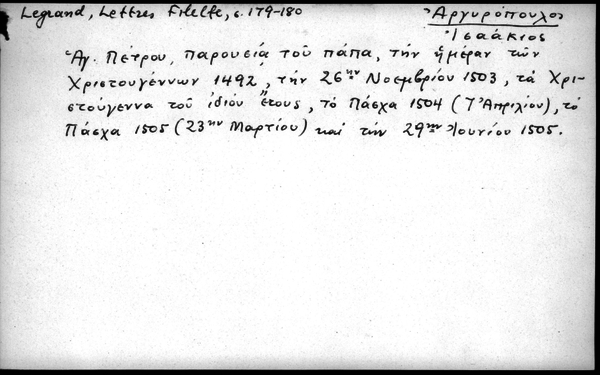 Legrand, Lettres Filelfe, σ. 179-180
Ἀργυρόπουλος
Ἰσαάκιος
Ἁγ. Πέτρου, παρουσίᾳ τοῦ πάπα, τὴν ἡμέραν τῶν
Χριστουγέννων 1492, τὴν 26ην Νοεμβρίου 1503, τὰ Χρι-
στούγεννα τοῦ ἰδίου ἔτους, τὸ Πάσχα 1504 (7 Ἀπριλίου), τὸ
Πάσχα 1505 (23ην Μαρτίου) καὶ τὴν 29ην Ἰουνίου 1505.